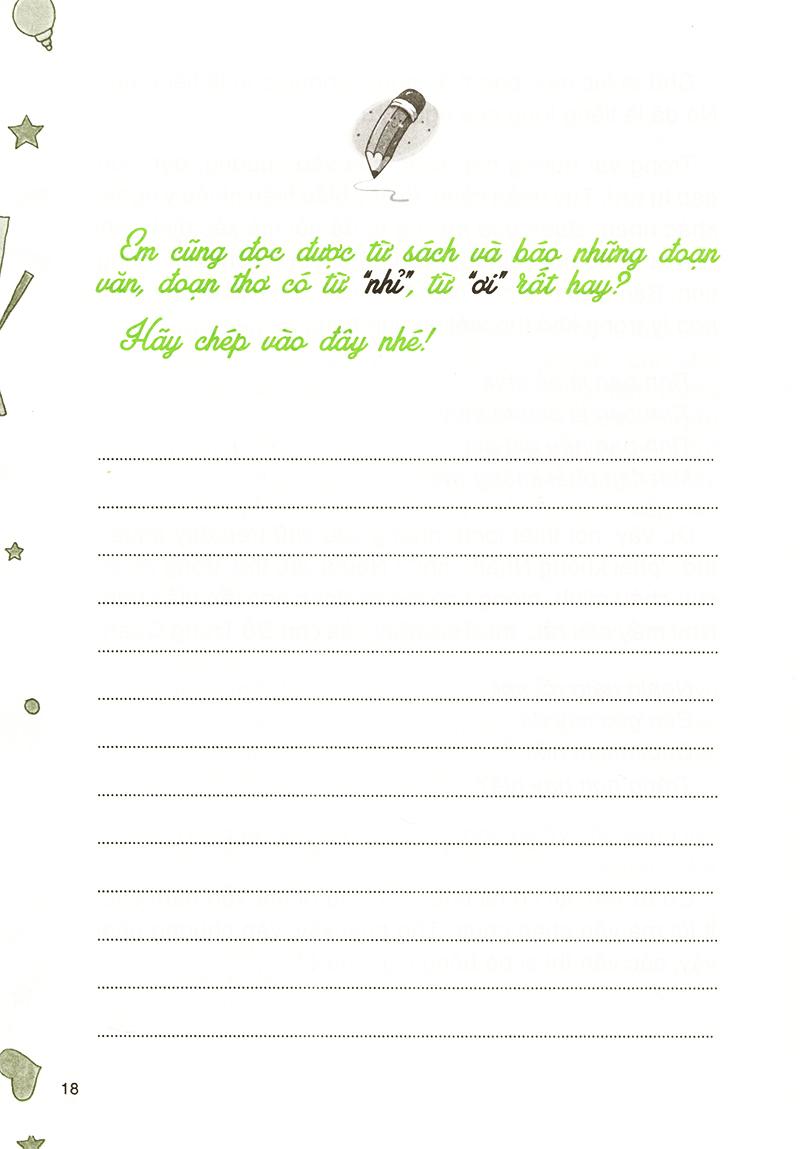 Em cũng đọc được từ sách và báo những đoạn
văn, đoạn thơ có từ "nhỉ", từ "ơi" rất hay?
Hãy chép vào đây nhé!
18